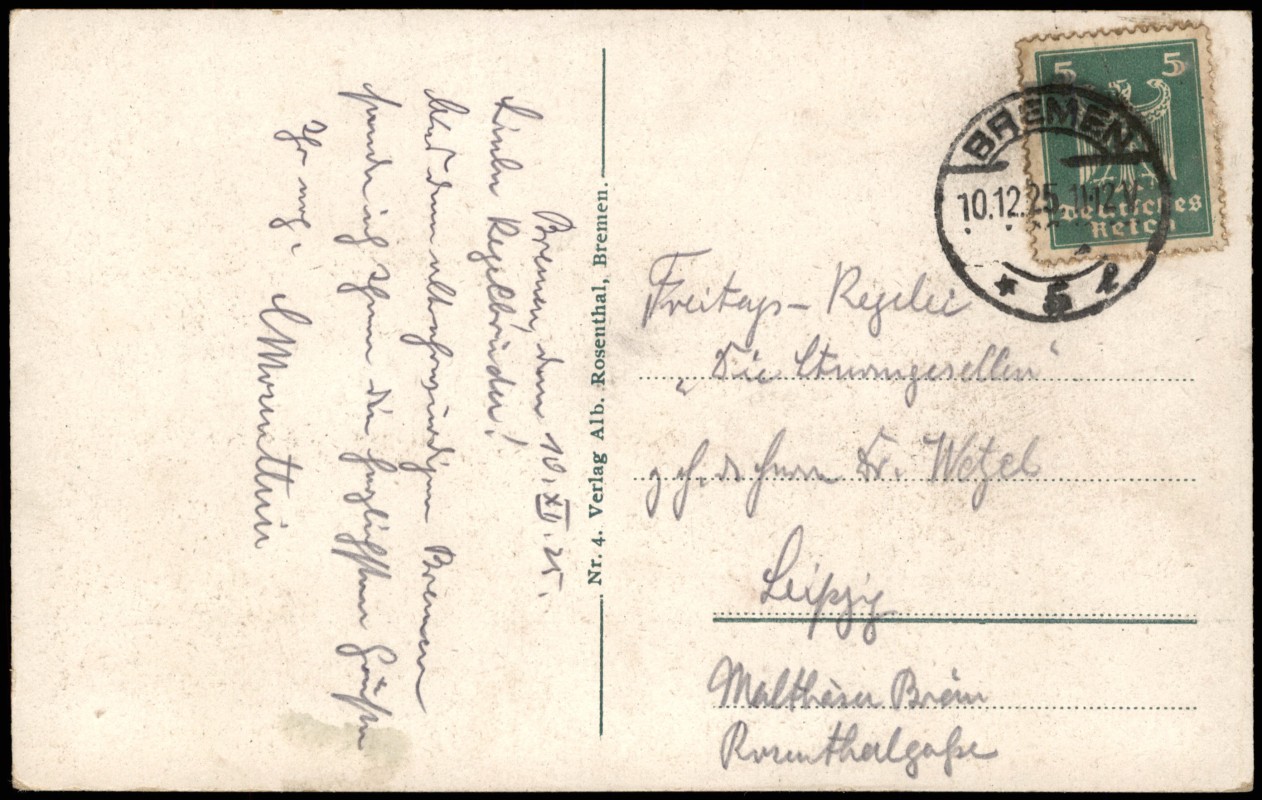 Bremen, den 10. XII. 25.
Liebe Kegelbrüder!
Aus dem altehrwürdigen Bremen
sende ich Ihnen die herzlichsten Grüße
Ihr
Nr. 4. Verlag Alb. Rosenthal, Bremen.
5 5
Deutsches
Reich
BREMEN
10.12.25. 11-12 V
* 5
Freitags - Kegelei
„Die Sturmgesellen“
z. H. des Herrn Dr. Wetzel
Leipzig
Malthäser Bräu
Rosenthalgaße